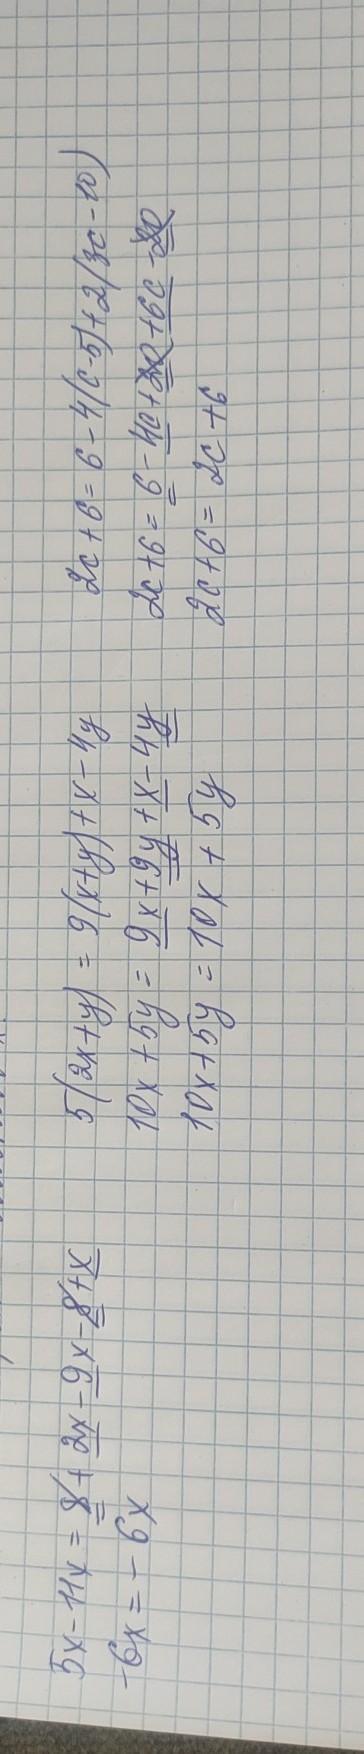 5x-11x = 8 + 2x - 9x - 8 + x
-6x = -6x
5(2x+y) = 9(x+y) + x - 4y
10x + 5y = 9x + 9y + x - 4y
10x + 5y = 10x + 5y
2c + 6 = 6 - 4(c-5) + 2(3c-10)
2c + 6 = 6 - 4c + 20 + 6c - 20
2c + 6 = 2c + 6